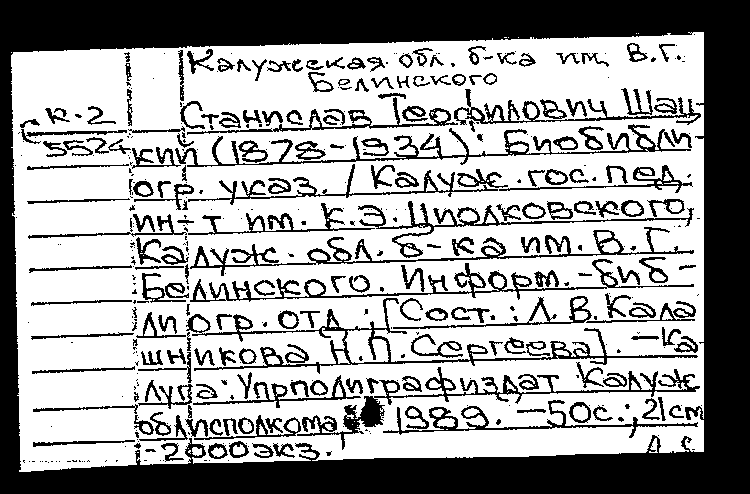 Калужская обл. б-ка им. В.Г.
Белинского
К-2
5524
Станислав Теофилович Шац-
кий (1878-1934): Биобибли-
огр. указ. / Калуж. гос. пед.
ин-т им. К.Э. Циолковского,
Калуж. обл. б-ка им. В.Г.
Белинского. Информ.-биб-
лиогр. отд.; [Сост.: Л.В. Кала
шникова, Н.П. Сергеева]. - Ка-
луга: Упрполиграфиздат Калуж
облисполкома, 1989. - 50с.; 21 см
- 2000 экз.